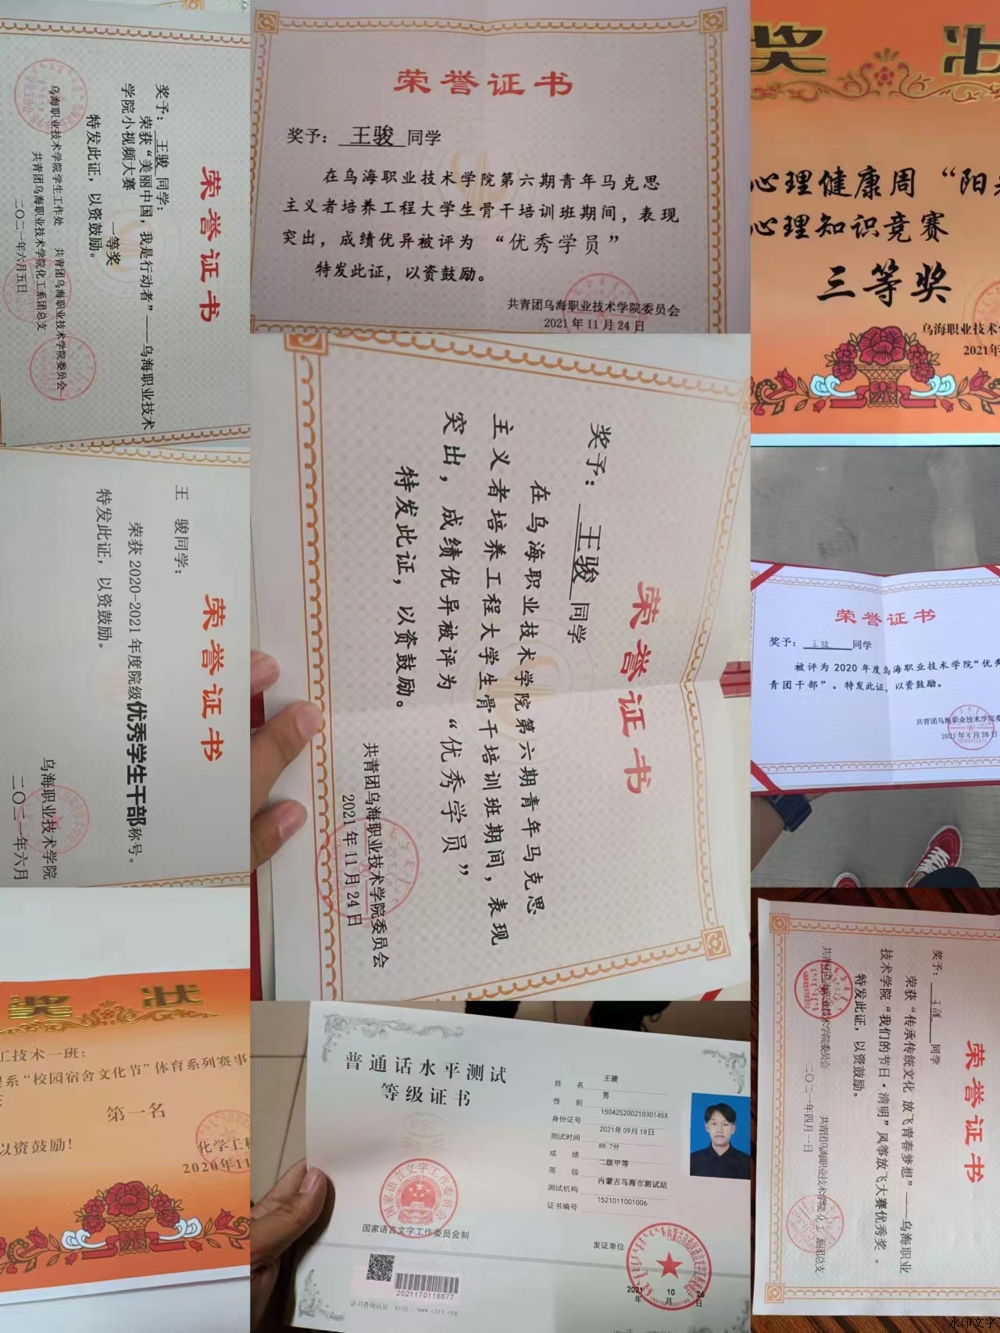 荣誉证书
奖予：王骏同学：
荣获“美丽中国，我是行动者”——乌海职业技术
学院小视频大赛
一等奖
特发此证，以资鼓励。
乌海职业技术学院学生工作处 共青团乌海职业技术学院委员会
共青团乌海职业技术学院化工系团总支
二〇二一年六月五日
荣誉证书
奖予：王骏同学
在乌海职业技术学院第六期青年马克思
主义者培养工程大学生骨干培训班期间，表现
突出，成绩优异被评为 “优秀学员”
特发此证，以资鼓励。
共青团乌海职业技术学院委员会
2021年11月24日
奖 状
心理健康周“阳
心理知识竞赛
三等奖
乌海职业技术
2021年
荣誉证书
王 骏同学：
荣获 2020-2021 年度院级优秀学生干部称号。
特发此证，以资鼓励。
乌海职业技术学院
二〇二一年六月
荣誉证书
奖予：王骏同学
在乌海职业技术学院第六期青年马克思
主义者培养工程大学生骨干培训班期间，表现
突出，成绩优异被评为 “优秀学员”
特发此证，以资鼓励。
共青团乌海职业技术学院委员会
2021年11月24日
荣誉证书
奖予：王骏同学
被评为 2020 年度乌海职业技术学院“优秀
青团干部”。特发此证，以资鼓励。
共青团乌海职业技术学院
2021年4月20日
奖 状
工技术一班：
系“校园宿舍文化节”体育系列赛事
第一名
以资鼓励！
化学工程
2020年11
普通话水平测试
等级证书
国家语言文字工作委员会
国家语言文字工作委员会制
姓 名 王骏
性 别 男
身份证号 15042520021030145X
测试时间 2021年09月18日
成 绩 86.7分
等 级 二级甲等
测试机构 内蒙古乌海市测试站
证书编号 1521011001006
发证单位
2021年 10月 26日
2021170116877
证书查询认证 http://www.cltt.org
荣誉证书
奖予：王骏同学
荣获“传承传统文化 放飞青春梦想”——乌海职业
技术学院“我们的节日·清明”风筝放飞大赛优秀奖。
特发此证，以资鼓励。
共青团乌海职业技术学院委员会 共青团乌海职业技术学院化工系团总支
二〇二一年四月一日
水印文字